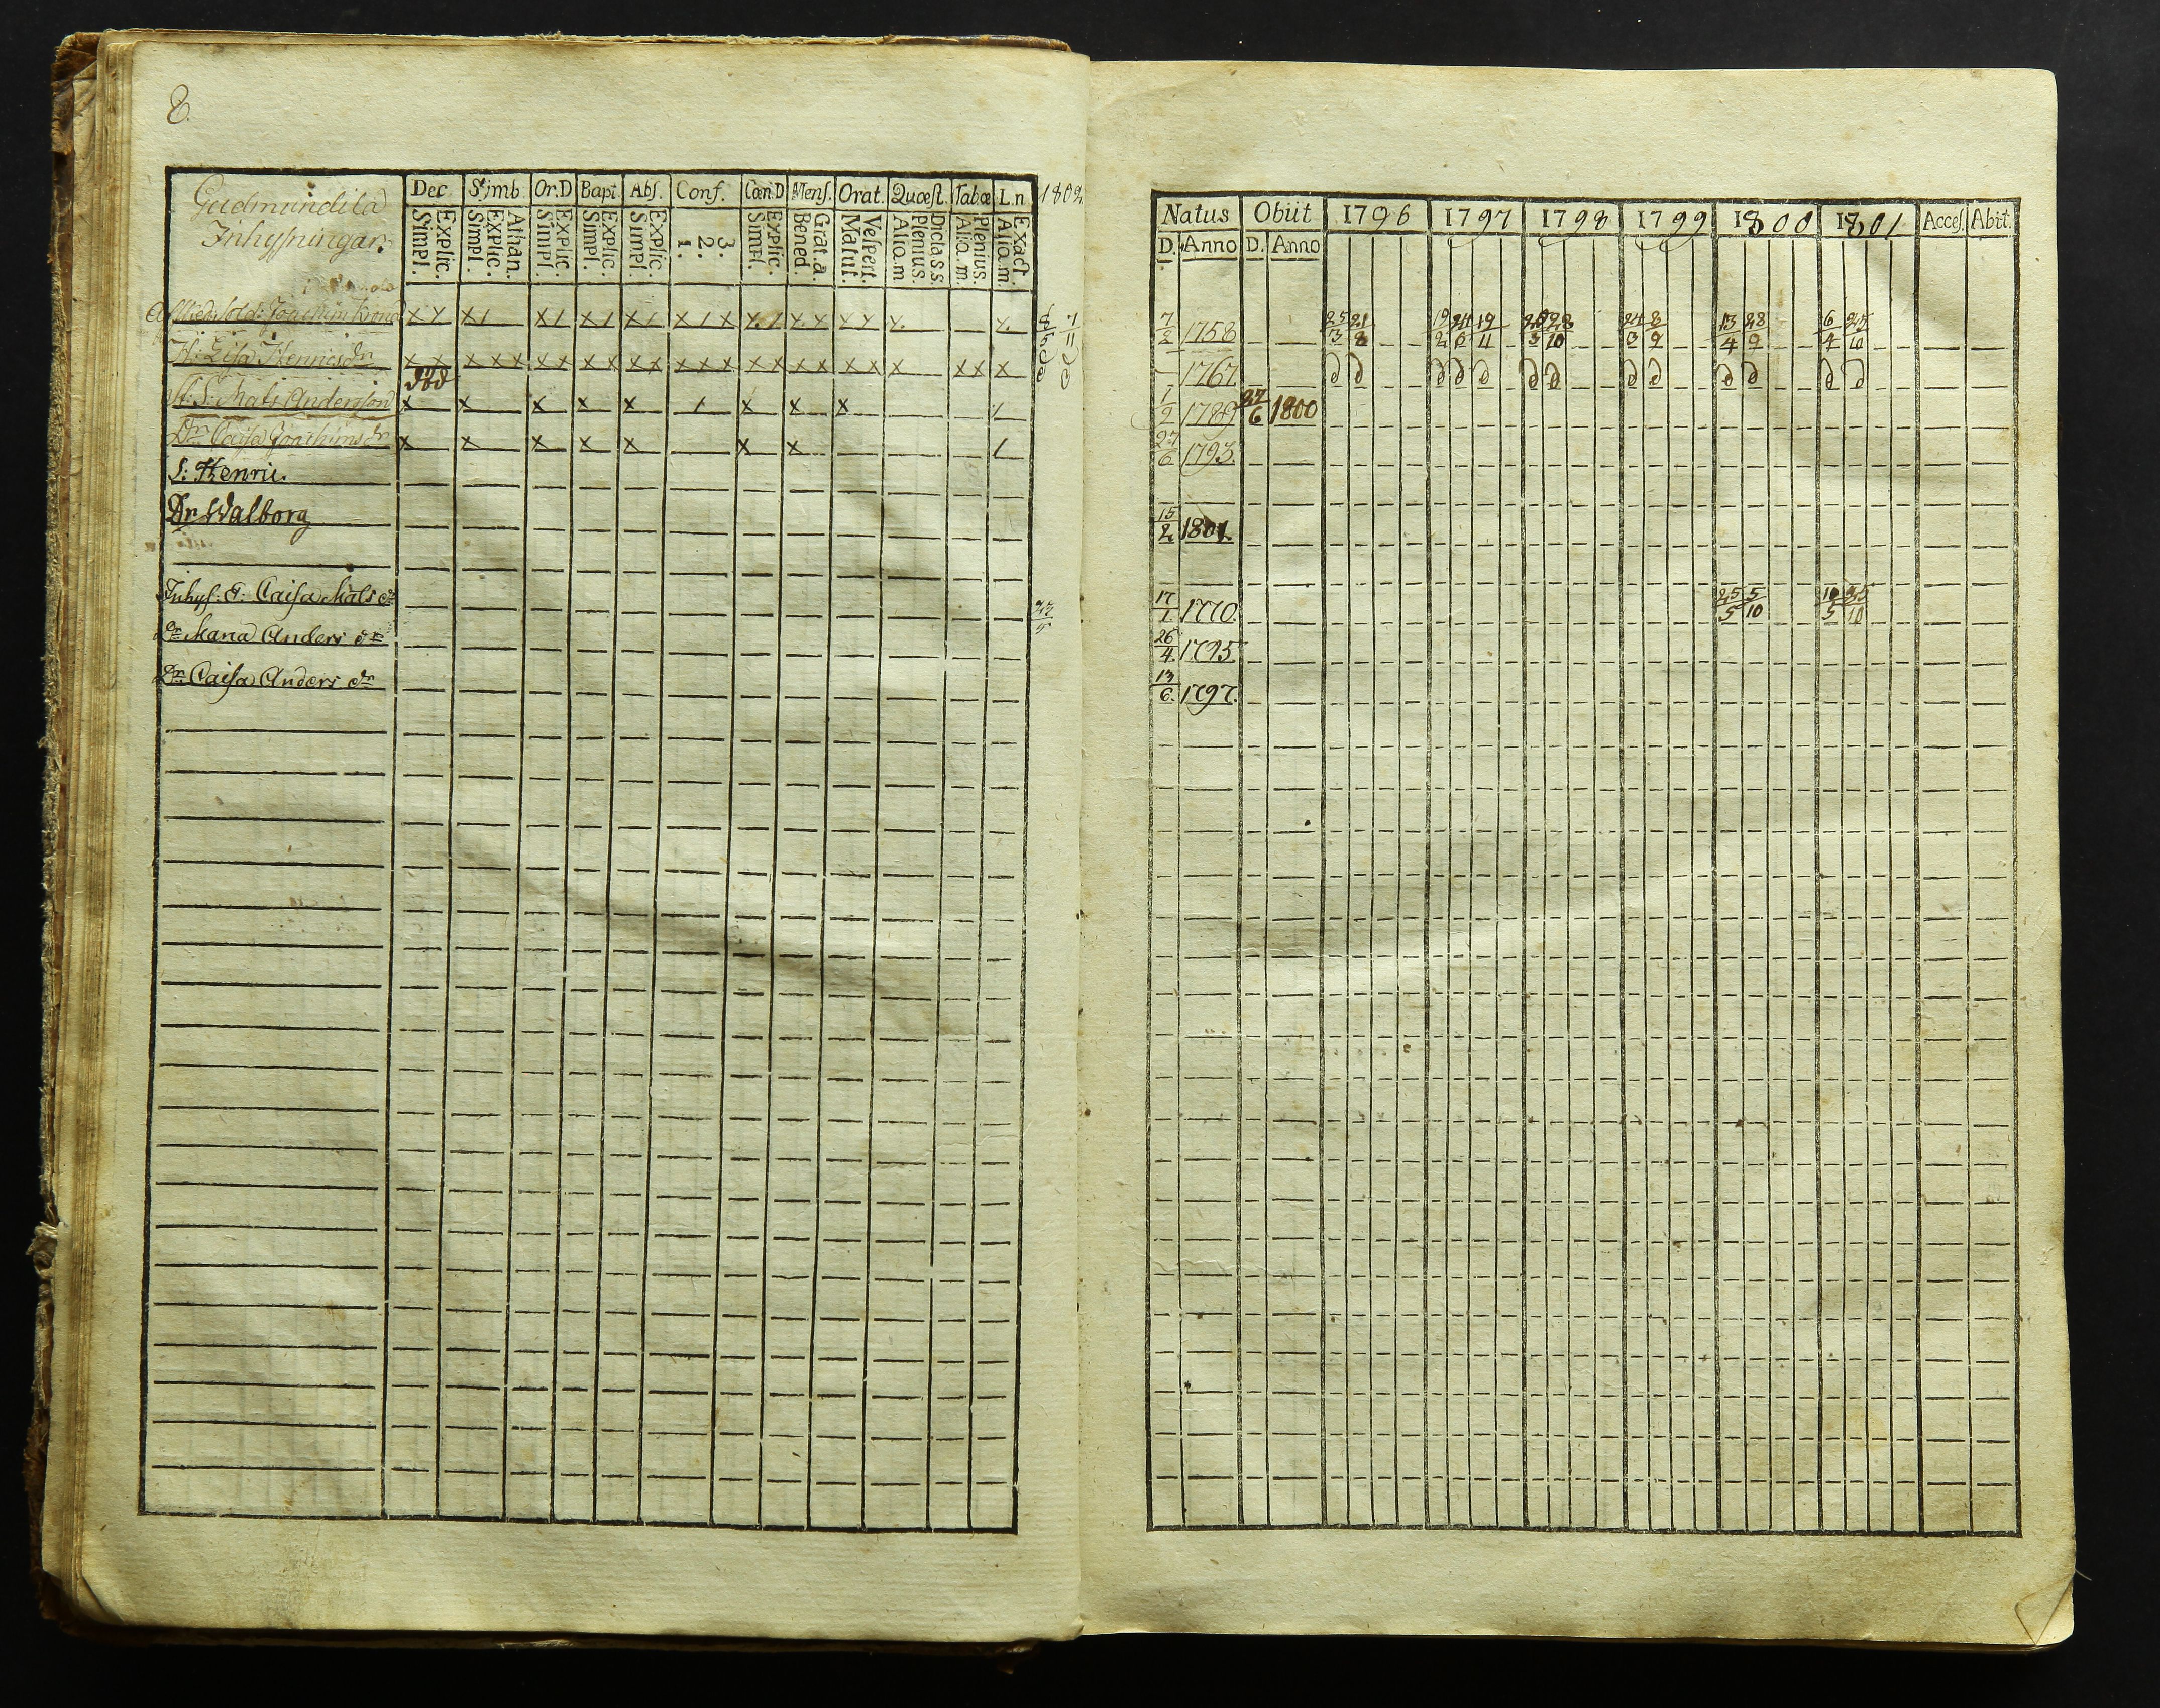 8.
Gudmundila
Inhysningar.
Dec. Simb. Or.D Bapt. Abs. Conf. Cœn.D Mens. Orat. Quæst. Tabœ L.n 1802
Simpl. Explic. Simpl. Explic. Athan. Simpl. Explic. Simpl. Explic. Simpl. Explic. 1. 2. 3. Simpl. Explic. Bened. Grat. a. Matut. Vespert. Alio.m Plenius. Dicta.s.s. Alio.m. Plenius. Alio.m. Exact.
Afsked. Sold: Joachim x x x / x / x / x / x / x x / x x x x x x x 8/5 7/11
H: Lisa Henricsdr x x x x x x x x x x x x x x x x x x x x x x x x
död
H: S: Mats Andersson x x x x x / x x x /
Dr Caisa Joachimsdr x x x x x x x /
S: Henric.
Dr Walborg
Inhys: E: Caisa Mats dr
Dr Maria Anders dr
Dr Caisa Anders dr
Natus Obiit 1796 1797 1798 1799 1800 1801 Acces. Abit.
D. Anno D. Anno
7/2 1758 25/3 21/8 19/2 24/6 19/11 28/10 24/3 8/9 13/4 28/9 6/4 25/10
1767 d d d d d d d d d d d d d
1/2 1789 27/6 1800
27/6 1793.
15/2 1801.
17/1 1770. 25/5 5/10 10/5 25/10
26/4. 1795.
13/6. 1797.